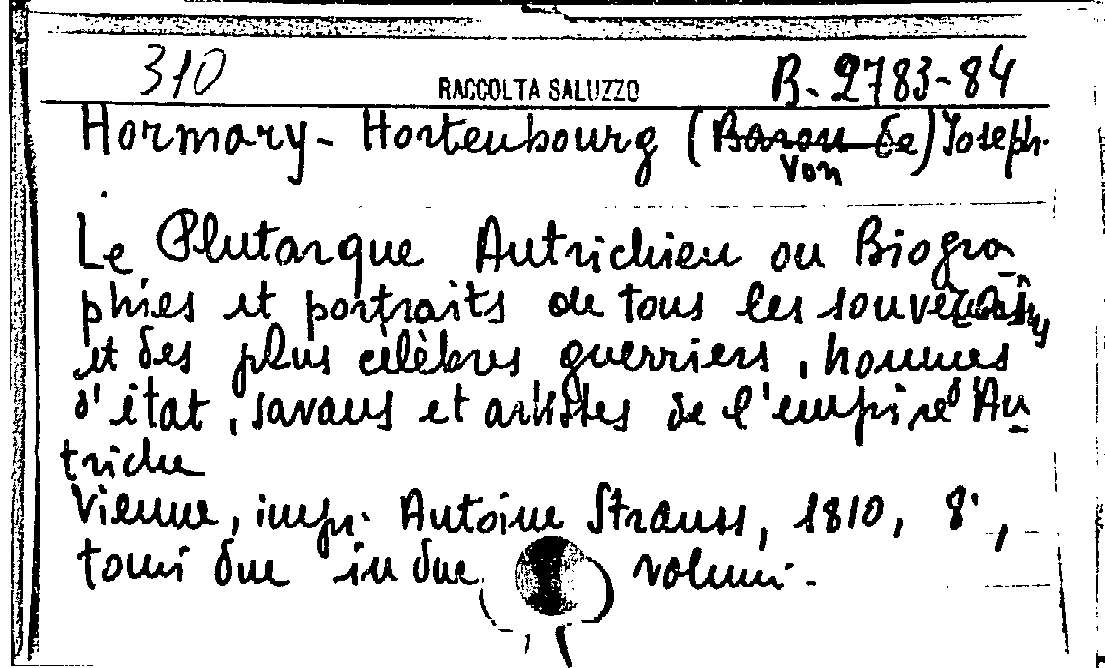 310
RACCOLTA SALUZZO
B. 2783-84
Hormary - Hortenbourg (Baron de) Joseph.
von
Le Plutarque Autrichien ou Biogra-
phies et portraits de tous les souverains
et des plus célèbres guerriers, hommes
d'état, savans et artistes de l'empire d'Au-
triche
Vienne, impr. Antoine Strauss, 1810, 8°,
tomi due in due volumi.